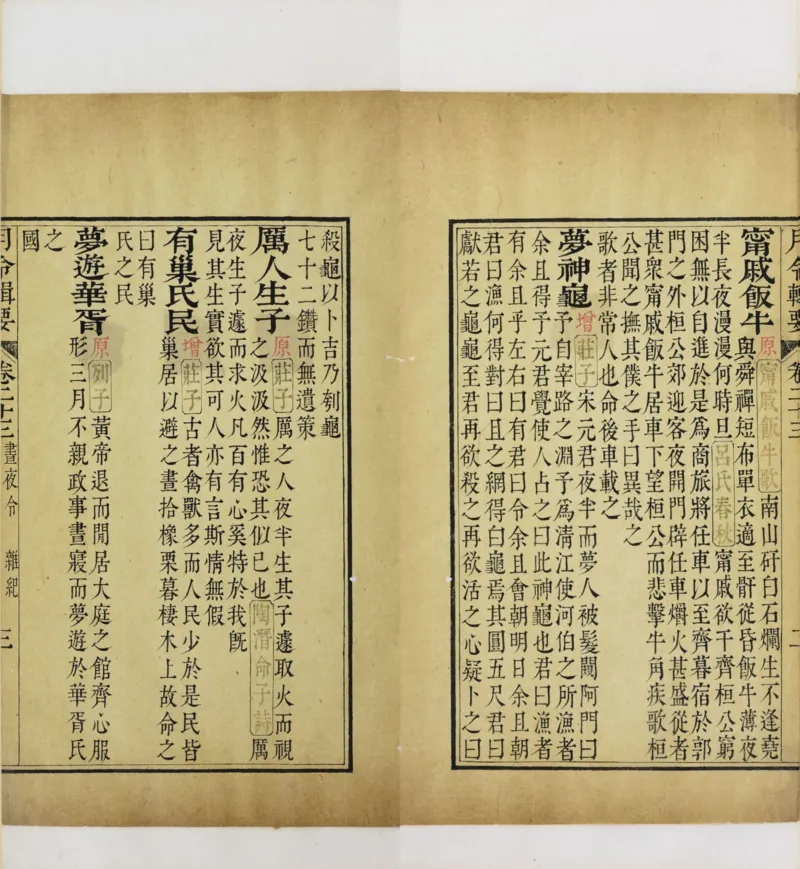 月令輯要 卷二十三 二
甯戚飯牛 原 甯戚飯牛歌 南山矸白石爛生不逢堯
與舜禪短布單衣適至骭從昏飯牛薄夜
半長夜漫漫何時旦 呂氏春秋 甯戚欲干齊桓公窮
困無以自進於是爲商旅將任車以至齊暮宿於郭
門之外桓公郊迎客夜開門辟任車爝火甚盛從者
甚衆甯戚飯牛居車下望桓公而悲擊牛角疾歌桓
公聞之撫其僕之手曰異哉之
歌者非常人也命後車載之
夢神龜 增 莊子 宋元君夜半而夢人被髮闚阿門曰
予自宰路之淵予爲清江使河伯之所漁者
余且得予元君覺使人占之曰此神龜也君曰漁者
有余且乎左右曰有君曰令余且會朝明日余且朝
君曰漁何得對曰且之網得白龜焉其圓五尺君曰
獻若之龜龜至君再欲殺之再欲活之心疑卜之曰
殺龜以卜吉乃刳龜
七十二鑽而無遺策
厲人生子 原 莊子 厲之人夜半生其子遽取火而視
之汲汲然惟恐其似已也 陶潛命子詩 厲
夜生子遽而求火凡百有心奚特於我旣
見其生實欲其可人亦有言斯情無假
有巢氏民 增 莊子 古者禽獸多而人民少於是民皆
巢居以避之晝拾橡栗暮棲木上故命之
曰有巢
氏之民
夢遊華胥 原 列子 黃帝退而閒居大庭之館齊心服
形三月不親政事晝寢而夢遊於華胥氏
之
國
月令輯要 卷二十三 晝夜令 雜紀 三